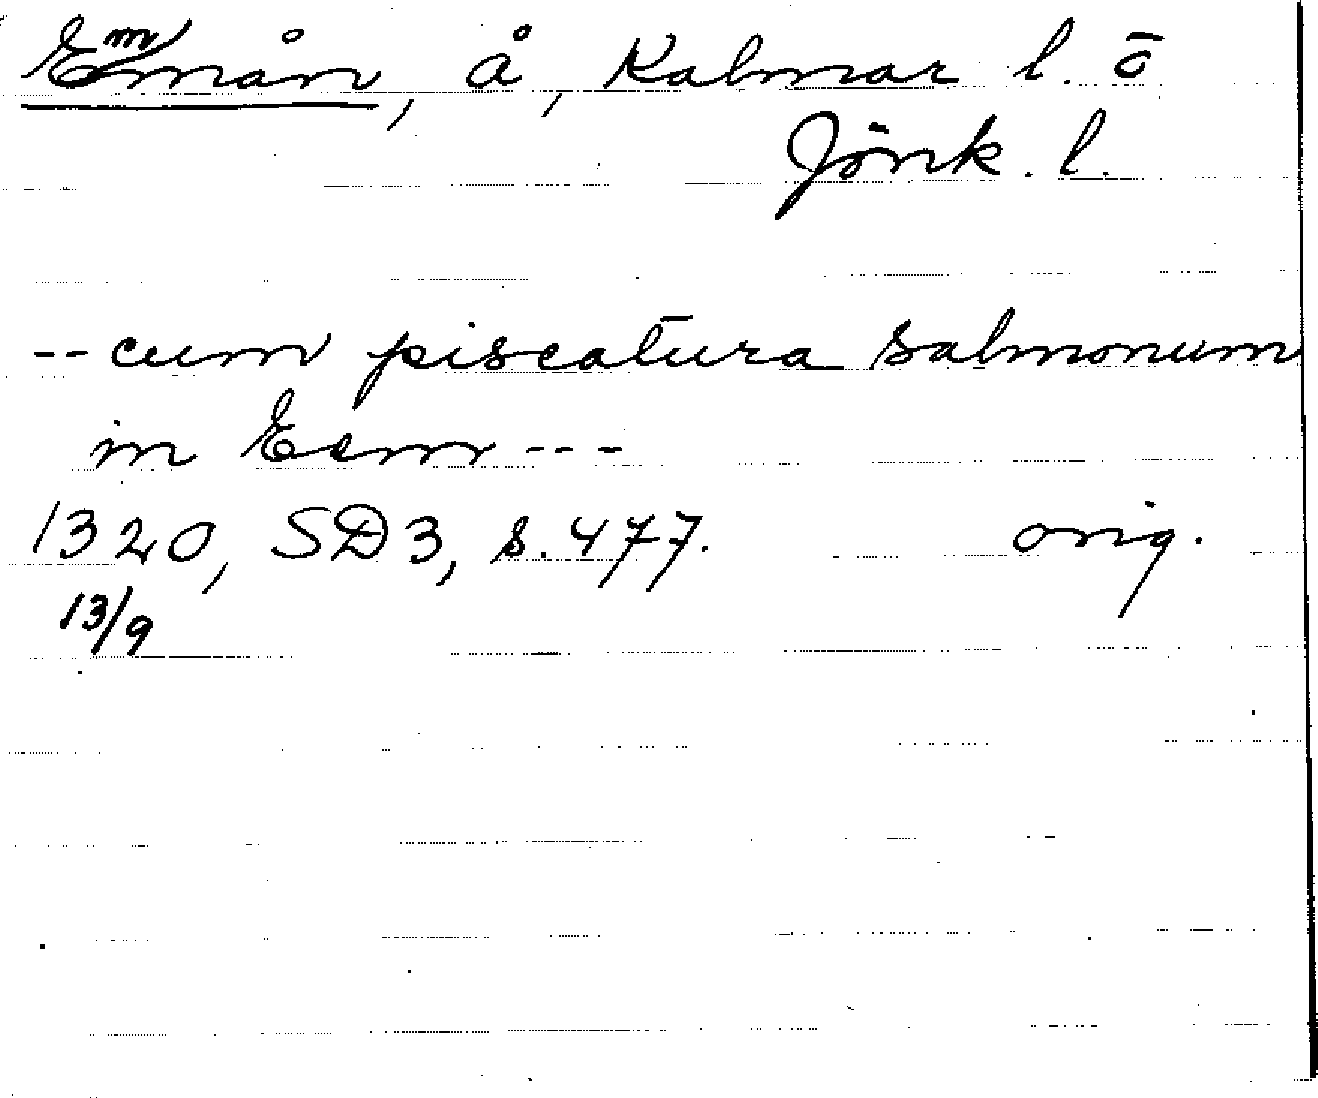 Emmån, å, Kalmar l. o
Jönk. l.
-- cum piscatura salmonum
in Eem ---
1320, SD3, s. 477. orig.
13/9